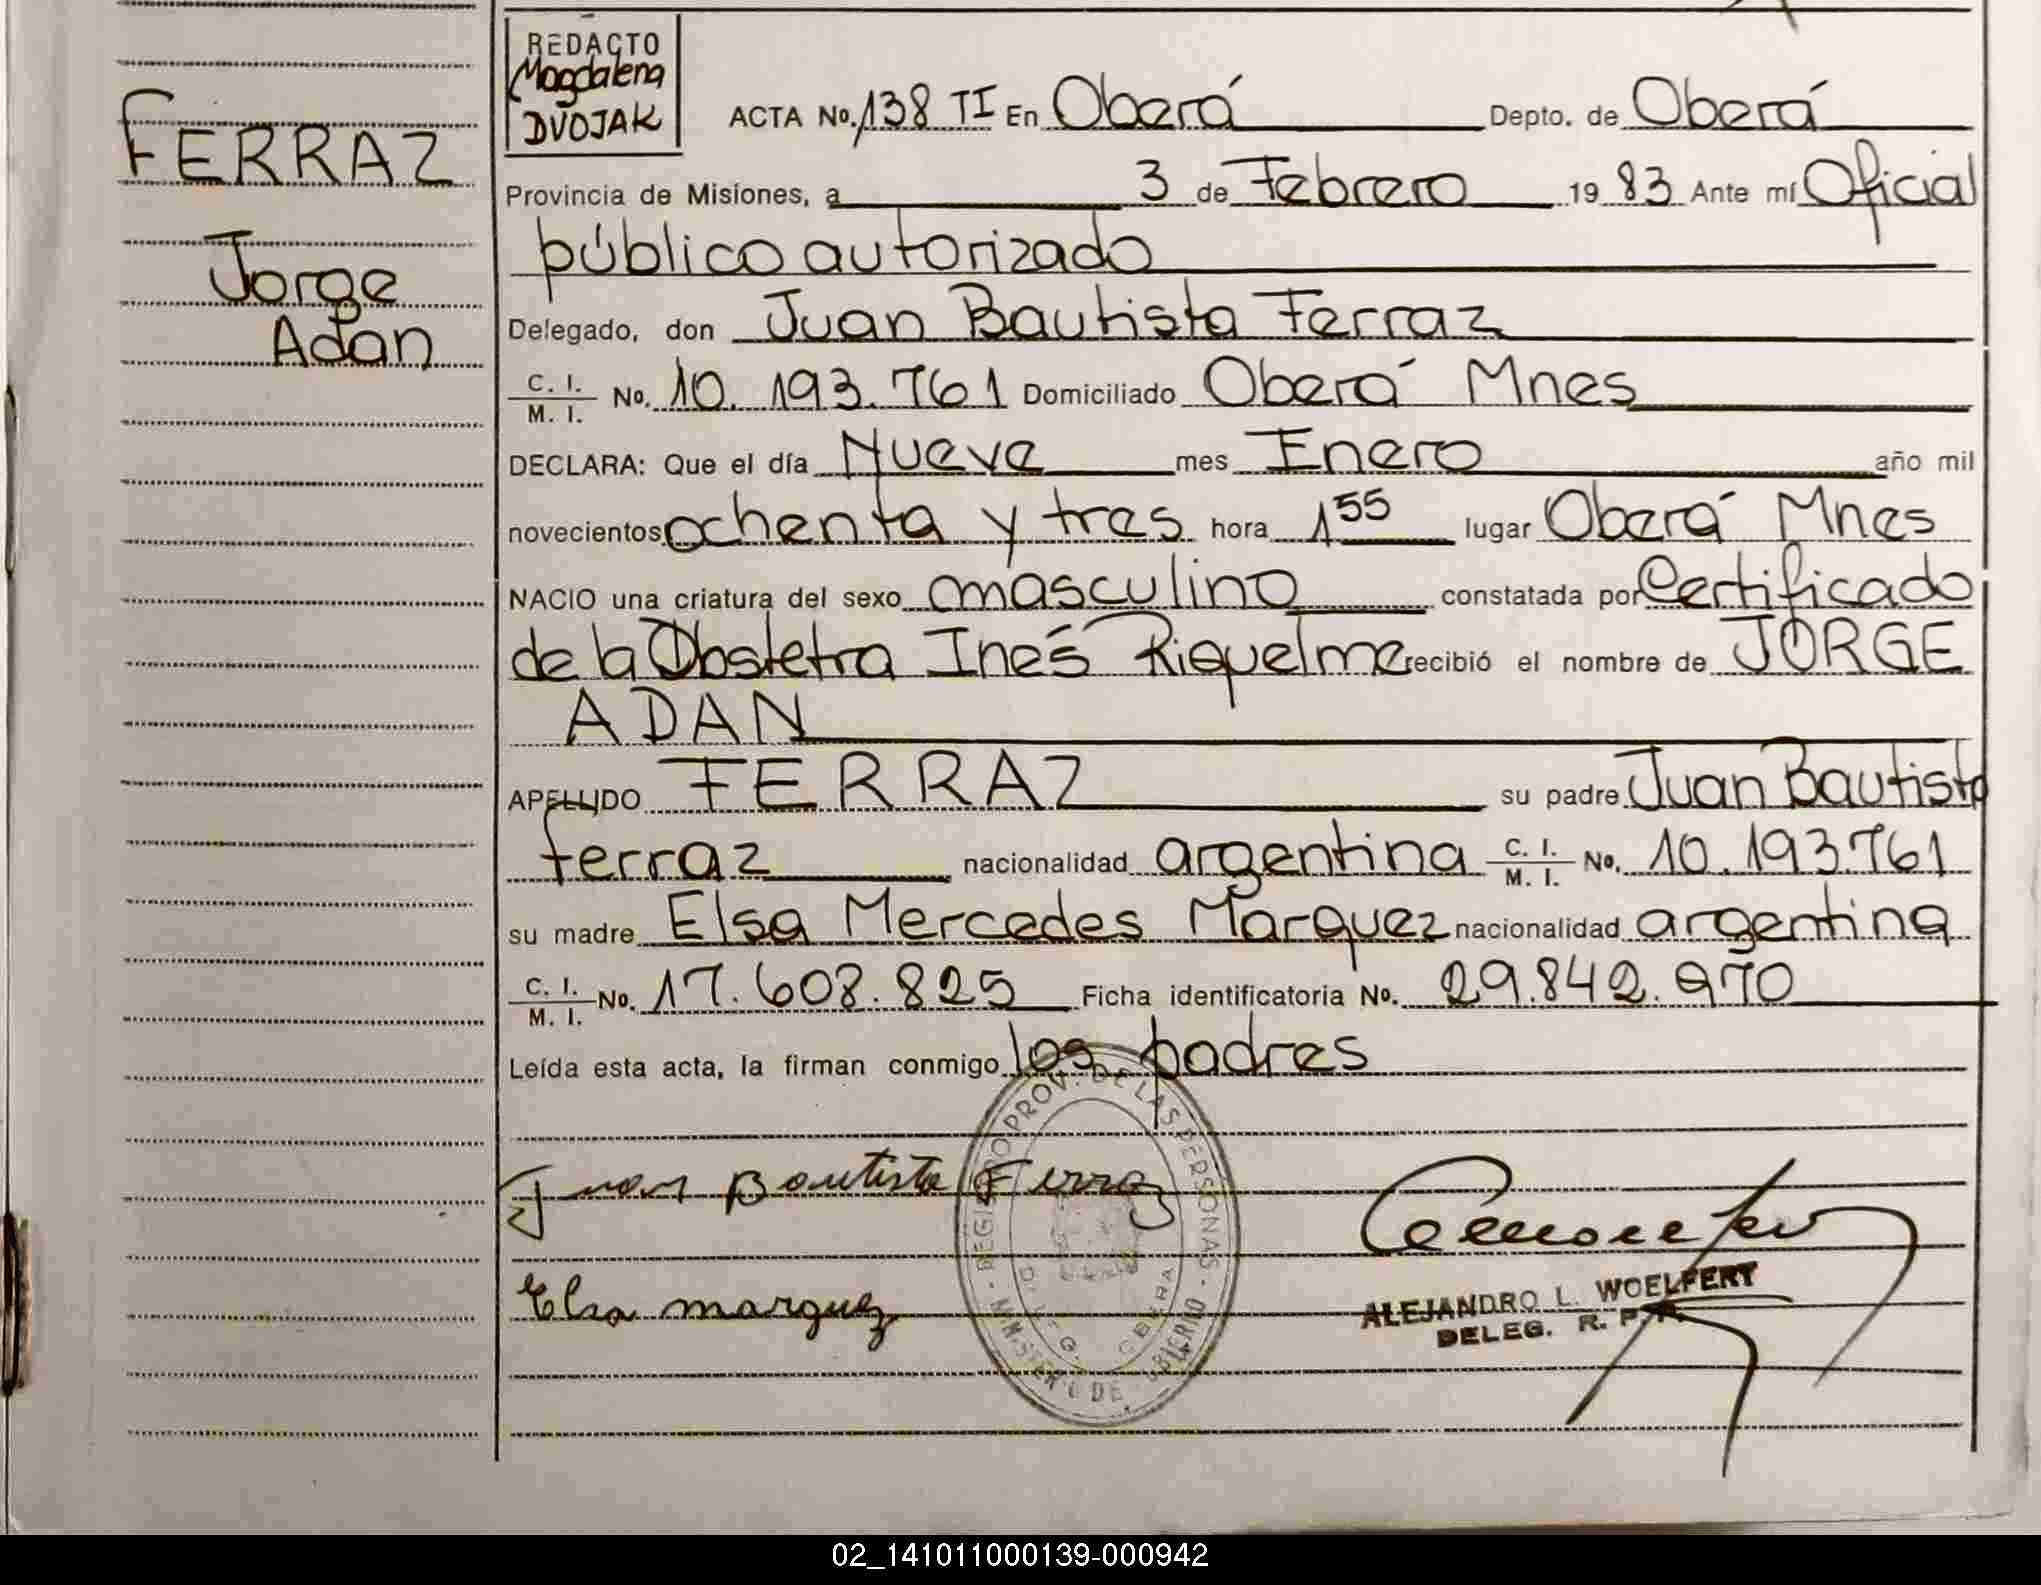 REDACTO
Magdalena
DVOJAK
FERRAZ
Jorge
Adan
ACTA No. 138 TI En Oberá Depto. de Oberá
Provincia de Misiones, a 3 de Febrero 19 83 Ante mí Oficial
público autorizado
Delegado, don Juan Bautista Ferraz
C. I. / M. I. No. 10.193.761 Domiciliado Oberá Mnes
DECLARA: Que el día Nueve mes Enero año mil
novecientos ochenta y tres hora 1 55 lugar Oberá Mnes
NACIO una criatura del sexo masculino constatada por Certificado
de la Obstetra Inés Riquelme recibió el nombre de JORGE
ADAN
APELLIDO FERRAZ su padre Juan Bautista
Ferraz nacionalidad argentina C. I. / M. I. No. 10.193.761
su madre Elsa Mercedes Marquez nacionalidad argentina
C. I. / M. I. No. 17.608.825 Ficha identificatoria No. 29.842.970
Leída esta acta, la firman conmigo los padres
Juan Bautista Ferraz
Elsa marquez
REGISTRO PROV. DE LAS PERSONAS
MINISTERIO DE GOBIERNO
DELEG. OBERA
ALEJANDRO L. WOELFERT
DELEG. R. P. P.
02_141011000139-000942